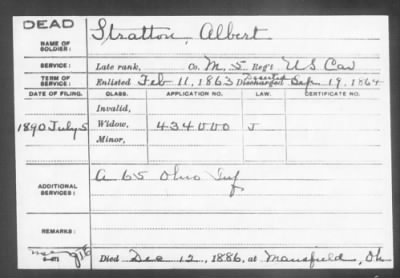 DEAD
NAME OF SOLDIER: Stratton, Albert
SERVICE: Late rank, Co. M, 5 Reg't U S Cav
TERM OF SERVICE: Enlisted Feb 11, 1863 Deserted Discharged Sep. 19, 1864
DATE OF FILING. CLASS. APPLICATION NO. LAW. CERTIFICATE NO.
Invalid,
1890 July 5 Widow, 434000 J
Minor,
ADDITIONAL SERVICES: A 65 Ohio Inf
REMARKS:
Died Dec 12, 1886, at Mansfield, Oh